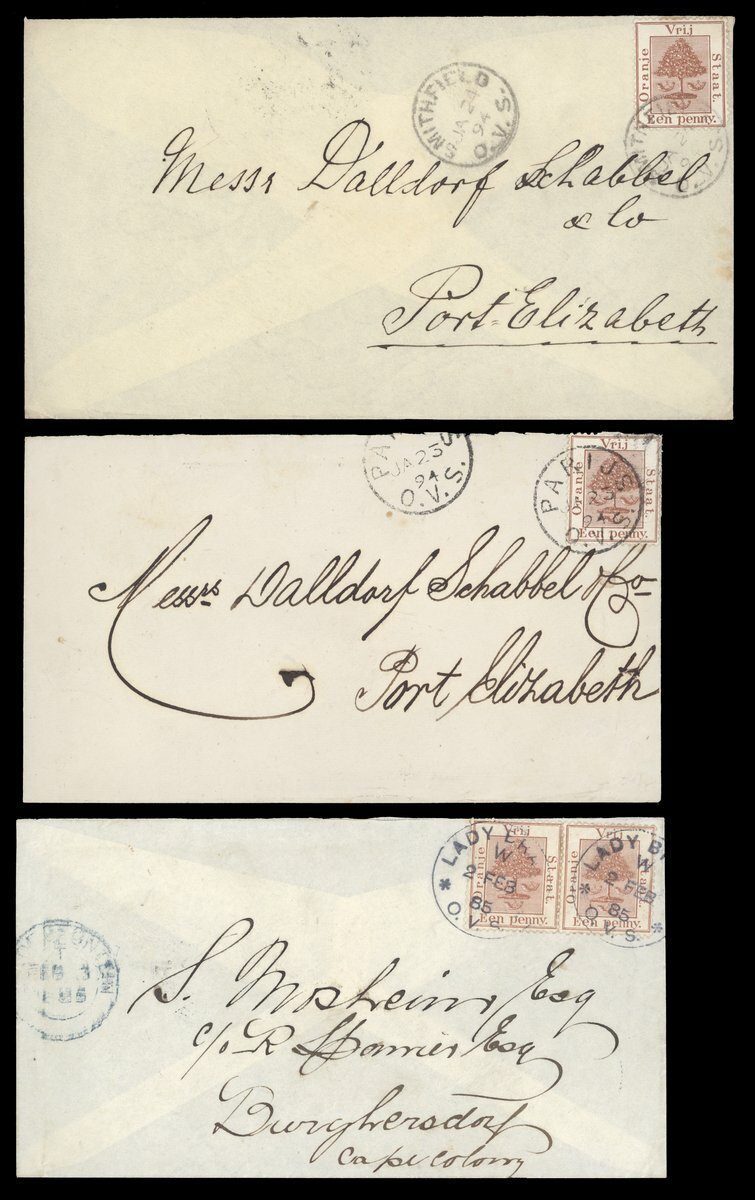 Vrij
Oranje
Staat.
Een penny.
SMITHFIELD
JA 24
94
O.V.S.
Messr Dalldorf Schabbel
& Co
Port-Elizabeth
JA 23
94
O.V.S.
Vrij
Oranje
Staat.
Een penny.
PARIJS
JA 23
94
O.V.S
Messrs Dalldorf Schabbel & Co
Port Elizabeth
LADY
W
2 FEB
85
O.V.S.
Vrij
Oranje
Staat.
Een penny.
LADY
W
2 FEB
85
O.V.S.
Oranje
Staat.
Een penny.
S. Mosheim Esq
c/o R Esq
Burghersdorf
Cape Colony